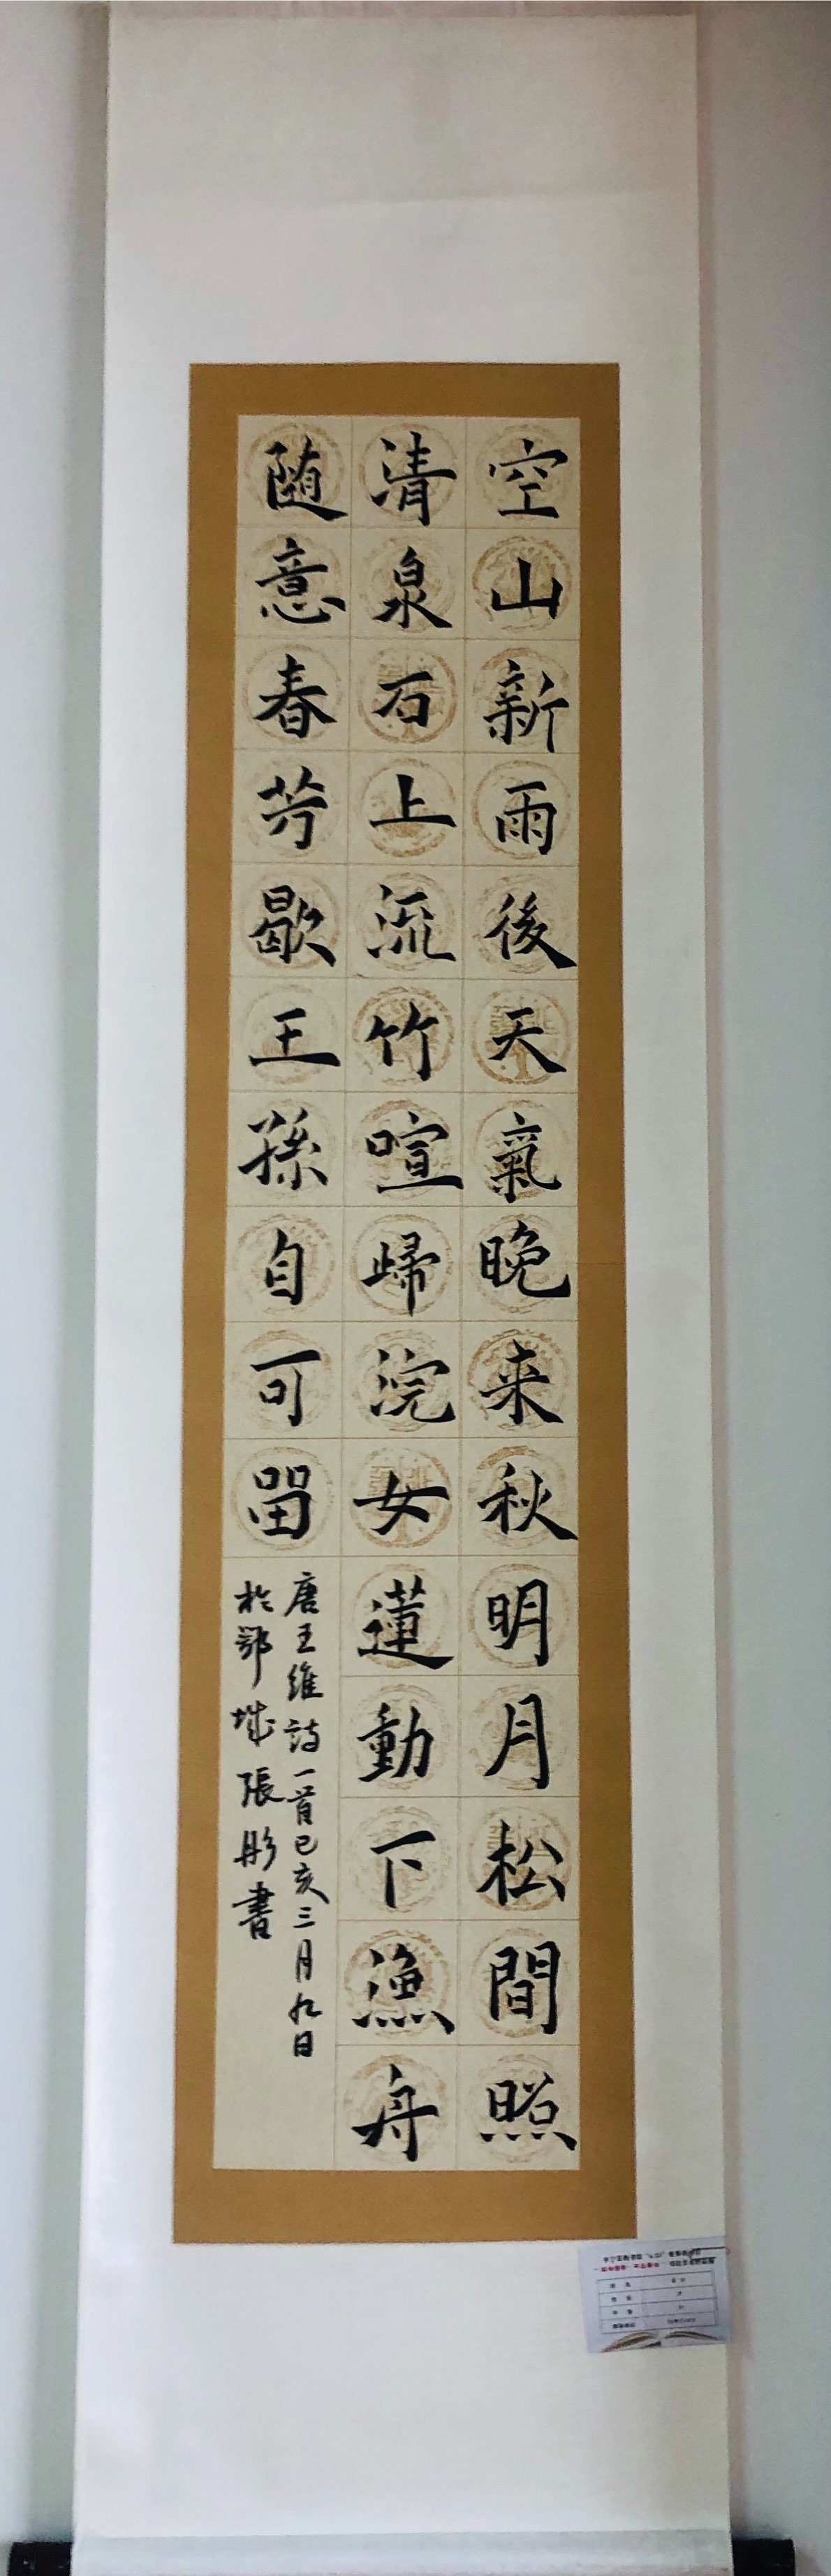 空山新雨後天氣晚来秋明月松間照
清泉石上流竹喧歸浣女蓮動下漁舟
随意春芳歇王孫自可留
唐王維詩一首己亥三月九日
於鄂城張彤書